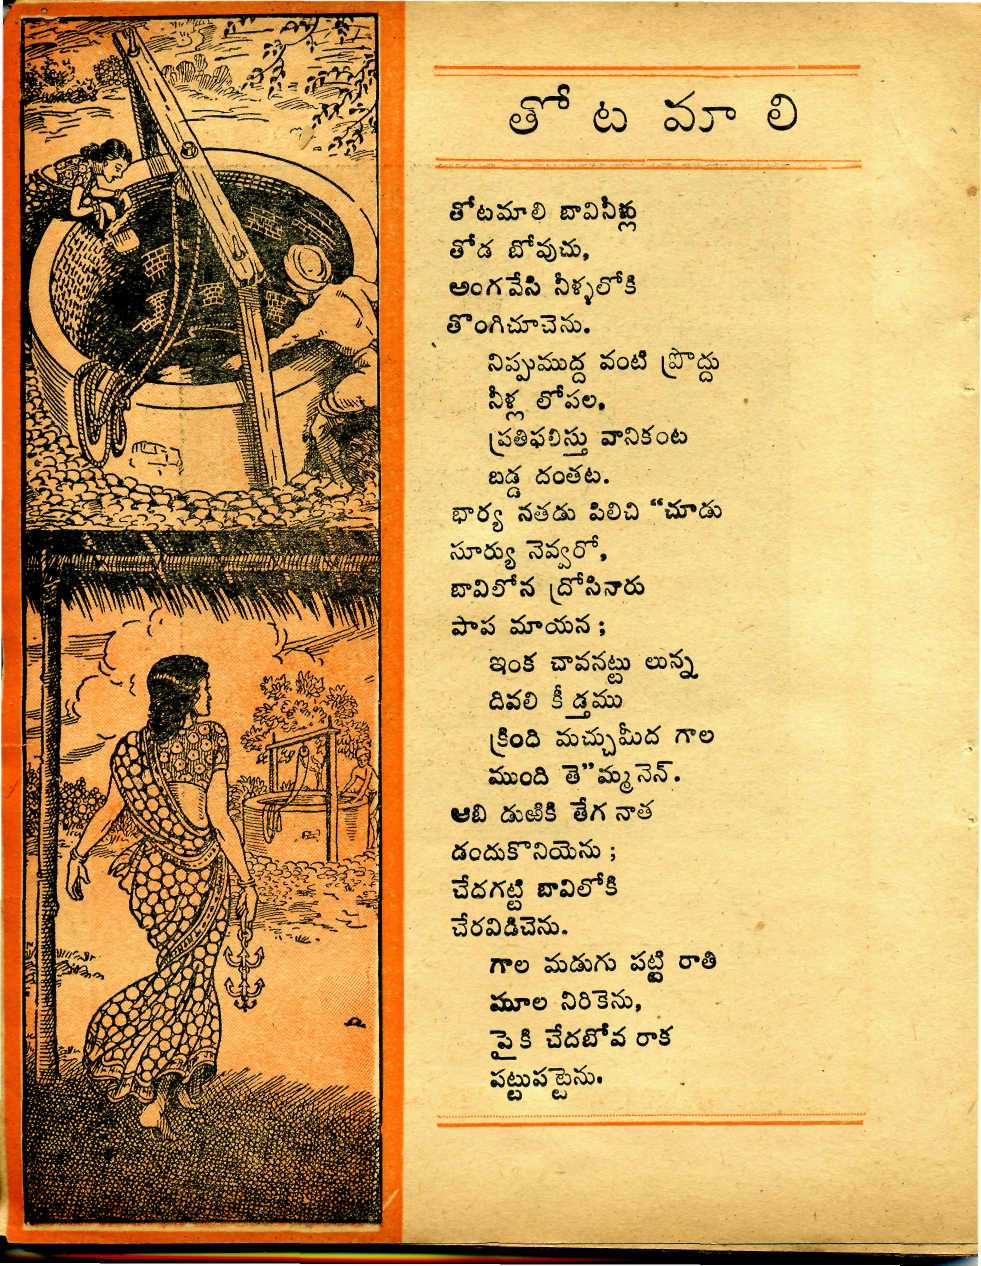 తోట మాలి
తోటమాలి బావినీళ్లు
తోడ బోవుచు,
అంగవేసి నీళ్ళలోకి
తొంగిచూచెను.
నిప్పుముద్ద వంటి ప్రొద్దు
నీళ్ల లోపల,
ప్రతిఫలిస్తు వానికంట
బడ్డ దంతట.
భార్య నతడు పిలిచి “చూడు
సూర్యు నెవ్వరో,
బావిలోన ద్రోసినారు
పాప మాయన ;
ఇంక చావనట్టు లున్న
దివలి కీ డ్తము
క్రింది మచ్చుమీద గాల
ముంది తె”మ్మనెన్.
ఆబి డుఱికి తేగ నాత
డందుకొనియెను ;
చేదగట్టి బావిలోకి
చేరవిడిచెను.
గాల మడుగు పట్టి రాతి
మూల నిరికెను,
పైకి చేదబోవ రాక
పట్టుపట్టెను.